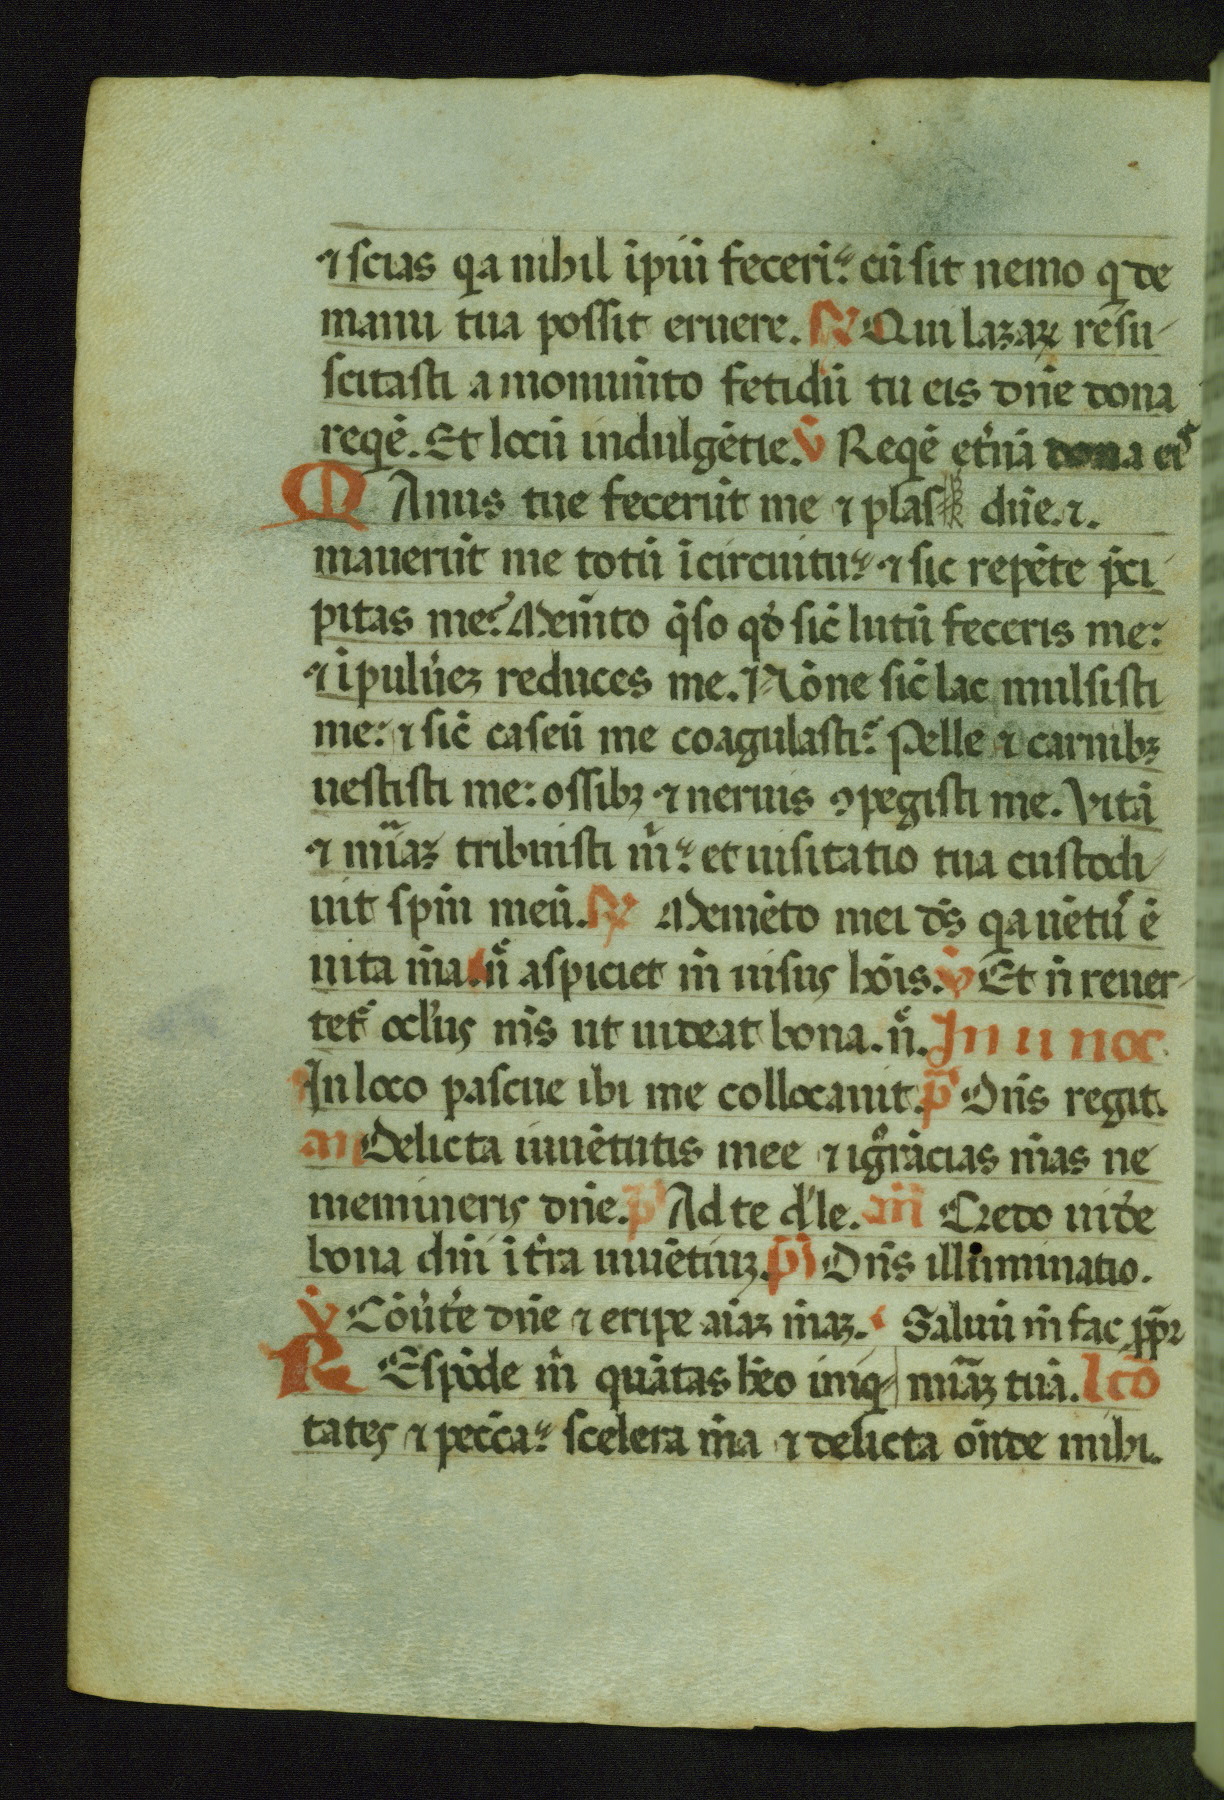 ⁊ scias qa nihil īpiū feceri᷑: cū sit nemo q de
manu tua possit eruere. R Qui lazaꝝ resu
scitasti a monum̄to fetidū tu eis dn̄e dona
reqē. Et locū indulgētie. V̄ Reqē et̓nā dona ei
MAnus tue fecerūt me ⁊ plas dn̄e. ⁊.
mauerūt me totū ī circuitu: ⁊ sic repēte p̄ci
pitas me? Mem̄to q̄so qd̓ sic̄ lutū feceris me:
⁊ ī pulu̓eꝫ reduces me. Nōne sic̄ lac mulsisti
me: ⁊ sic̄ caseū me coagulasti? Pelle ⁊ carnibꝫ
uestisti me: ossibꝫ ⁊ neruis ꝯpegisti me. Vitā
⁊ mīaꝫ tribuisti m̄: et uisitatio tua custodi
uit spm̄ meū. R Memēto mei ds̄ qa uētu᷒ ē
uita m̄a. n̄ aspiciet m̄ uisus hōis. V̄ Et n̄ reuer
tet᷒ ocl̓us m̄s ut uideat bona. n̄. In ii noc
In loco pascue ibi me collocauit. p̄ Dn̄s regit.
an Delicta iuuētutis mee ⁊ igrācias m̄as ne
memineris dn̄e. p̄ Ad te d̓le. an̄ Credo uid̓e
bona dn̄i ī t̓ra uiuētiuꝫ. p̄ Dn̄s illuminatio.
V̄ Cōu̓t̓e dn̄e ⁊ eripe aīaꝫ m̄aꝫ. Saluū m̄ fac ꝓpꝛ
REspōde m̄ quātas h̄eo iniq mīaꝫ tuā. lcō
tates ⁊ pecc̄a: scelera m̄a ⁊ delicta on̄de mihi.